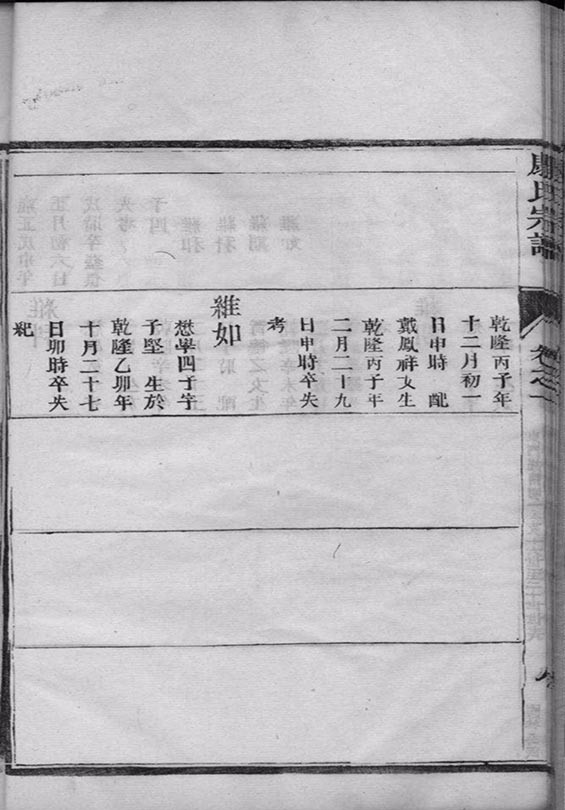 氏宗譜
卷之一
乾隆丙子年
十二月初一
日申時 配
戴鳳祥女生
乾隆丙子年
二月二十九
日申時卒失
考
維如
懋學四子字
子堅 生於
乾隆乙卯年
十月二十七
日卯時卒失
紀